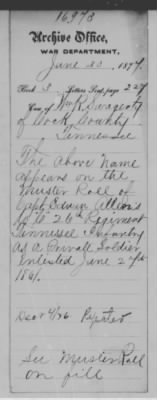 16978
Archive Office,
WAR DEPARTMENT,
June 20, 1877.
Book 3, Letters Sent, page 227
Case of Wm R. Swagerty
of Cock County
Tennessee
The above name
appears on the
Muster Roll of
Capt Edwin Allens
Co 26th Regiment
Tennessee Infantry
As a Private Soldier
Enlisted June 27th
1861.
See Muster Roll
on fill